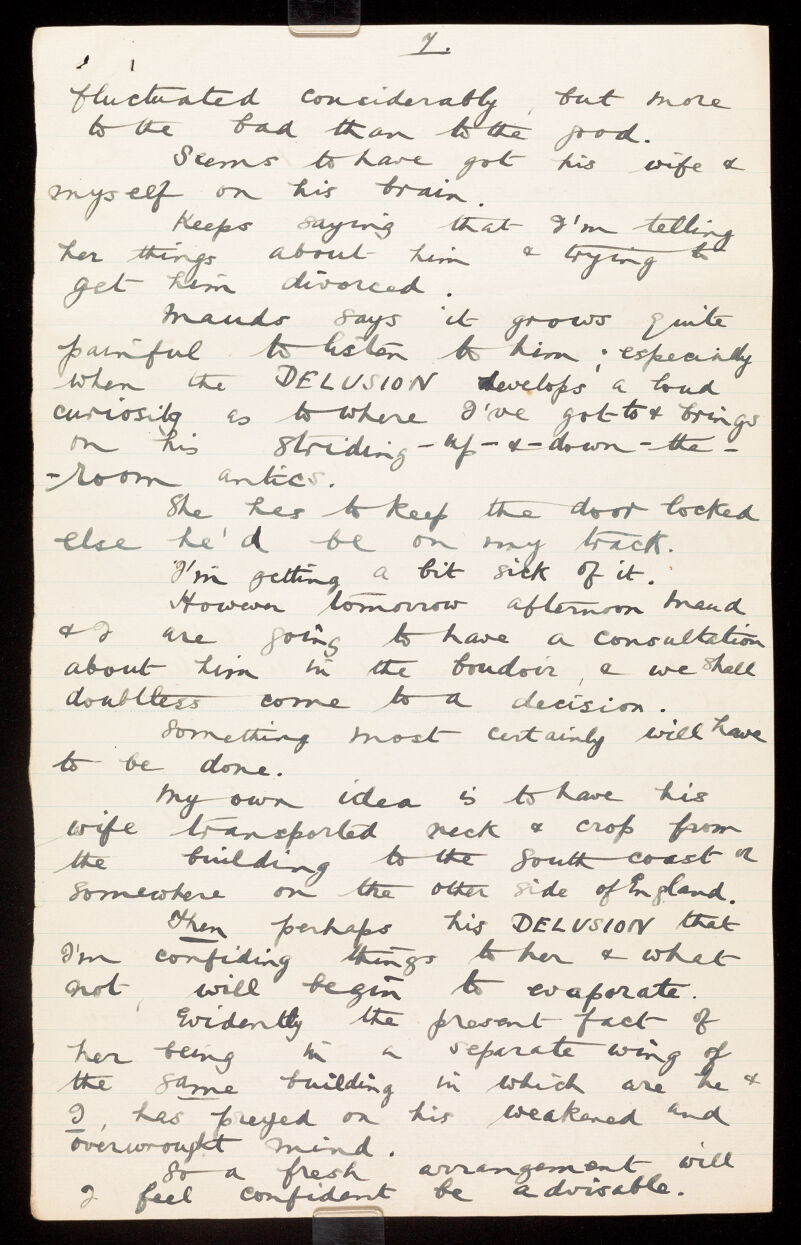 7.
fluctuated considerably, but more
to the bad than to the good.
Seems to have got his wife &
myself on his brain.
Keeps saying that I'm telling
her things about him & trying to
get him divorced.
Maudo says it grows quite
painful to listen to him; especially
when the DELUSION develops a loud
curiosity as to where I've got to & brings
on his striding-up-&-down-the-
-room antics.
She has to keep the door locked
else he'd be on my track.
I'm getting a bit sick of it.
However tomorrow afternoon Maud
& I are going to have a consultation
about him in the boudoir, & we shall
doubtless come to a decision.
Something most certainly will have
to be done.
My own idea is to have his
wife transported neck & crop from
the building to the South coast or
somewhere on the other side of England.
Then perhaps his DELUSION that
I'm confiding things to her & what
not, will begin to evaporate.
Evidently the present fact of
her being in a separate wing of
the same building in which are he &
I, has preyed on his weakened and
overwrought mind.
So a fresh arrangement will
I feel confident be advisable.